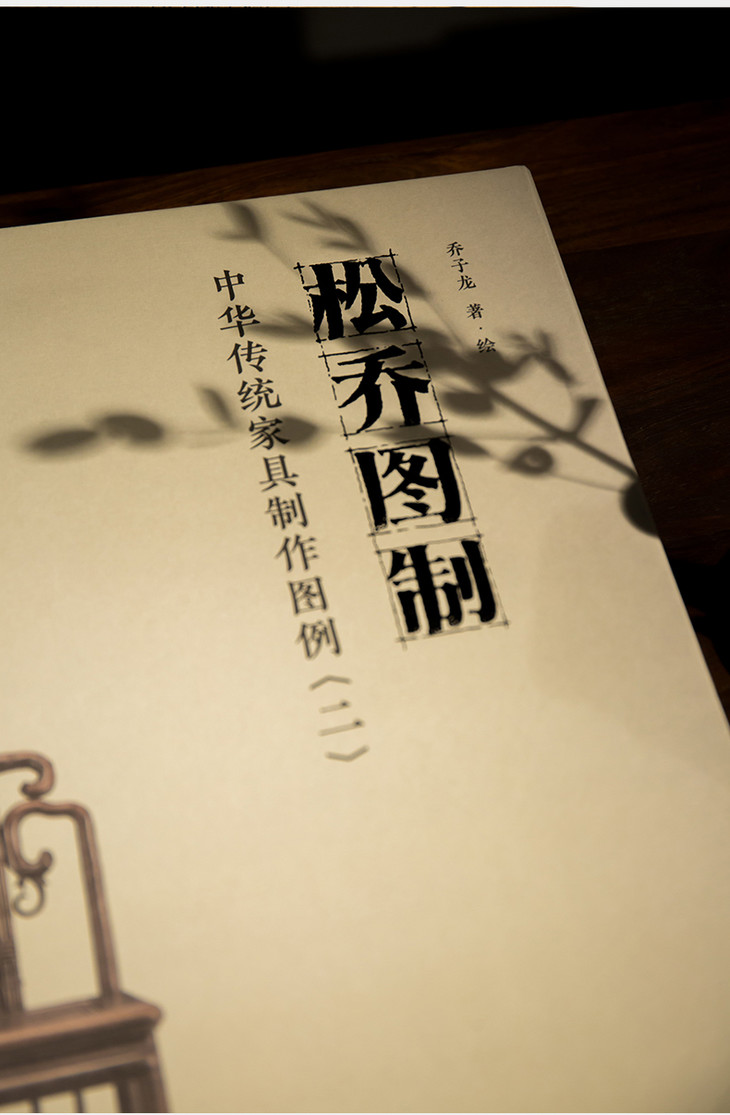 乔子龙 著·绘
松乔图制
中华传统家具制作图例〈二〉